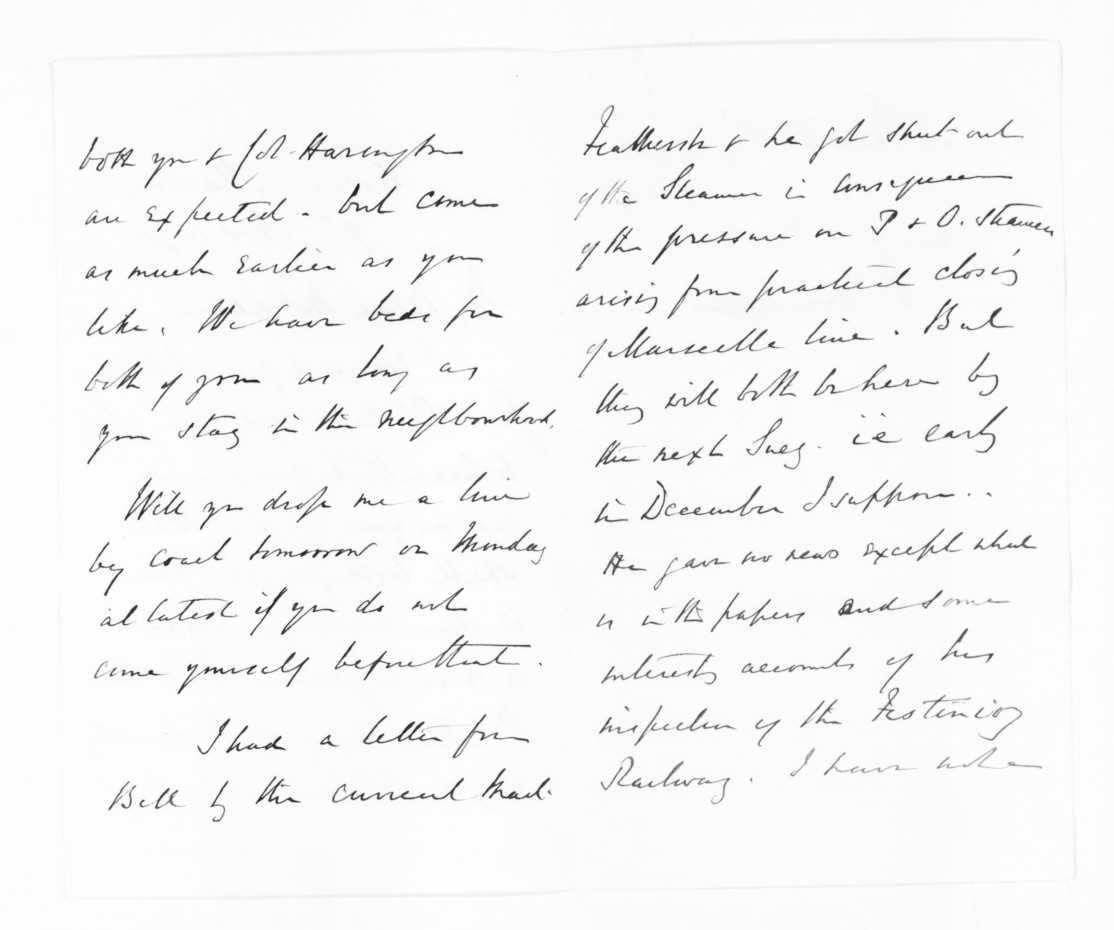 both you & Col. Harington
are expected. but come
as much earlier as you
like. We have beds for
both of you as long as
you stay in this neighbourhood.
Will you drop me a line
by coach tomorrow or Monday
at latest if you do not
come yourself before that.
I had a letter from
Bell by the current Mail.
& he got shut out
of the Steamer in consequence
of the pressure on P & O. Steamers
arising from practical closing
of Marseille line. But
they will both be here by
the next Suez. i.e early
in December I suppose..
He gave no news except what
is in the papers and some
interestg accounts of his
inspection of the Festiniog
Railway. I have not a